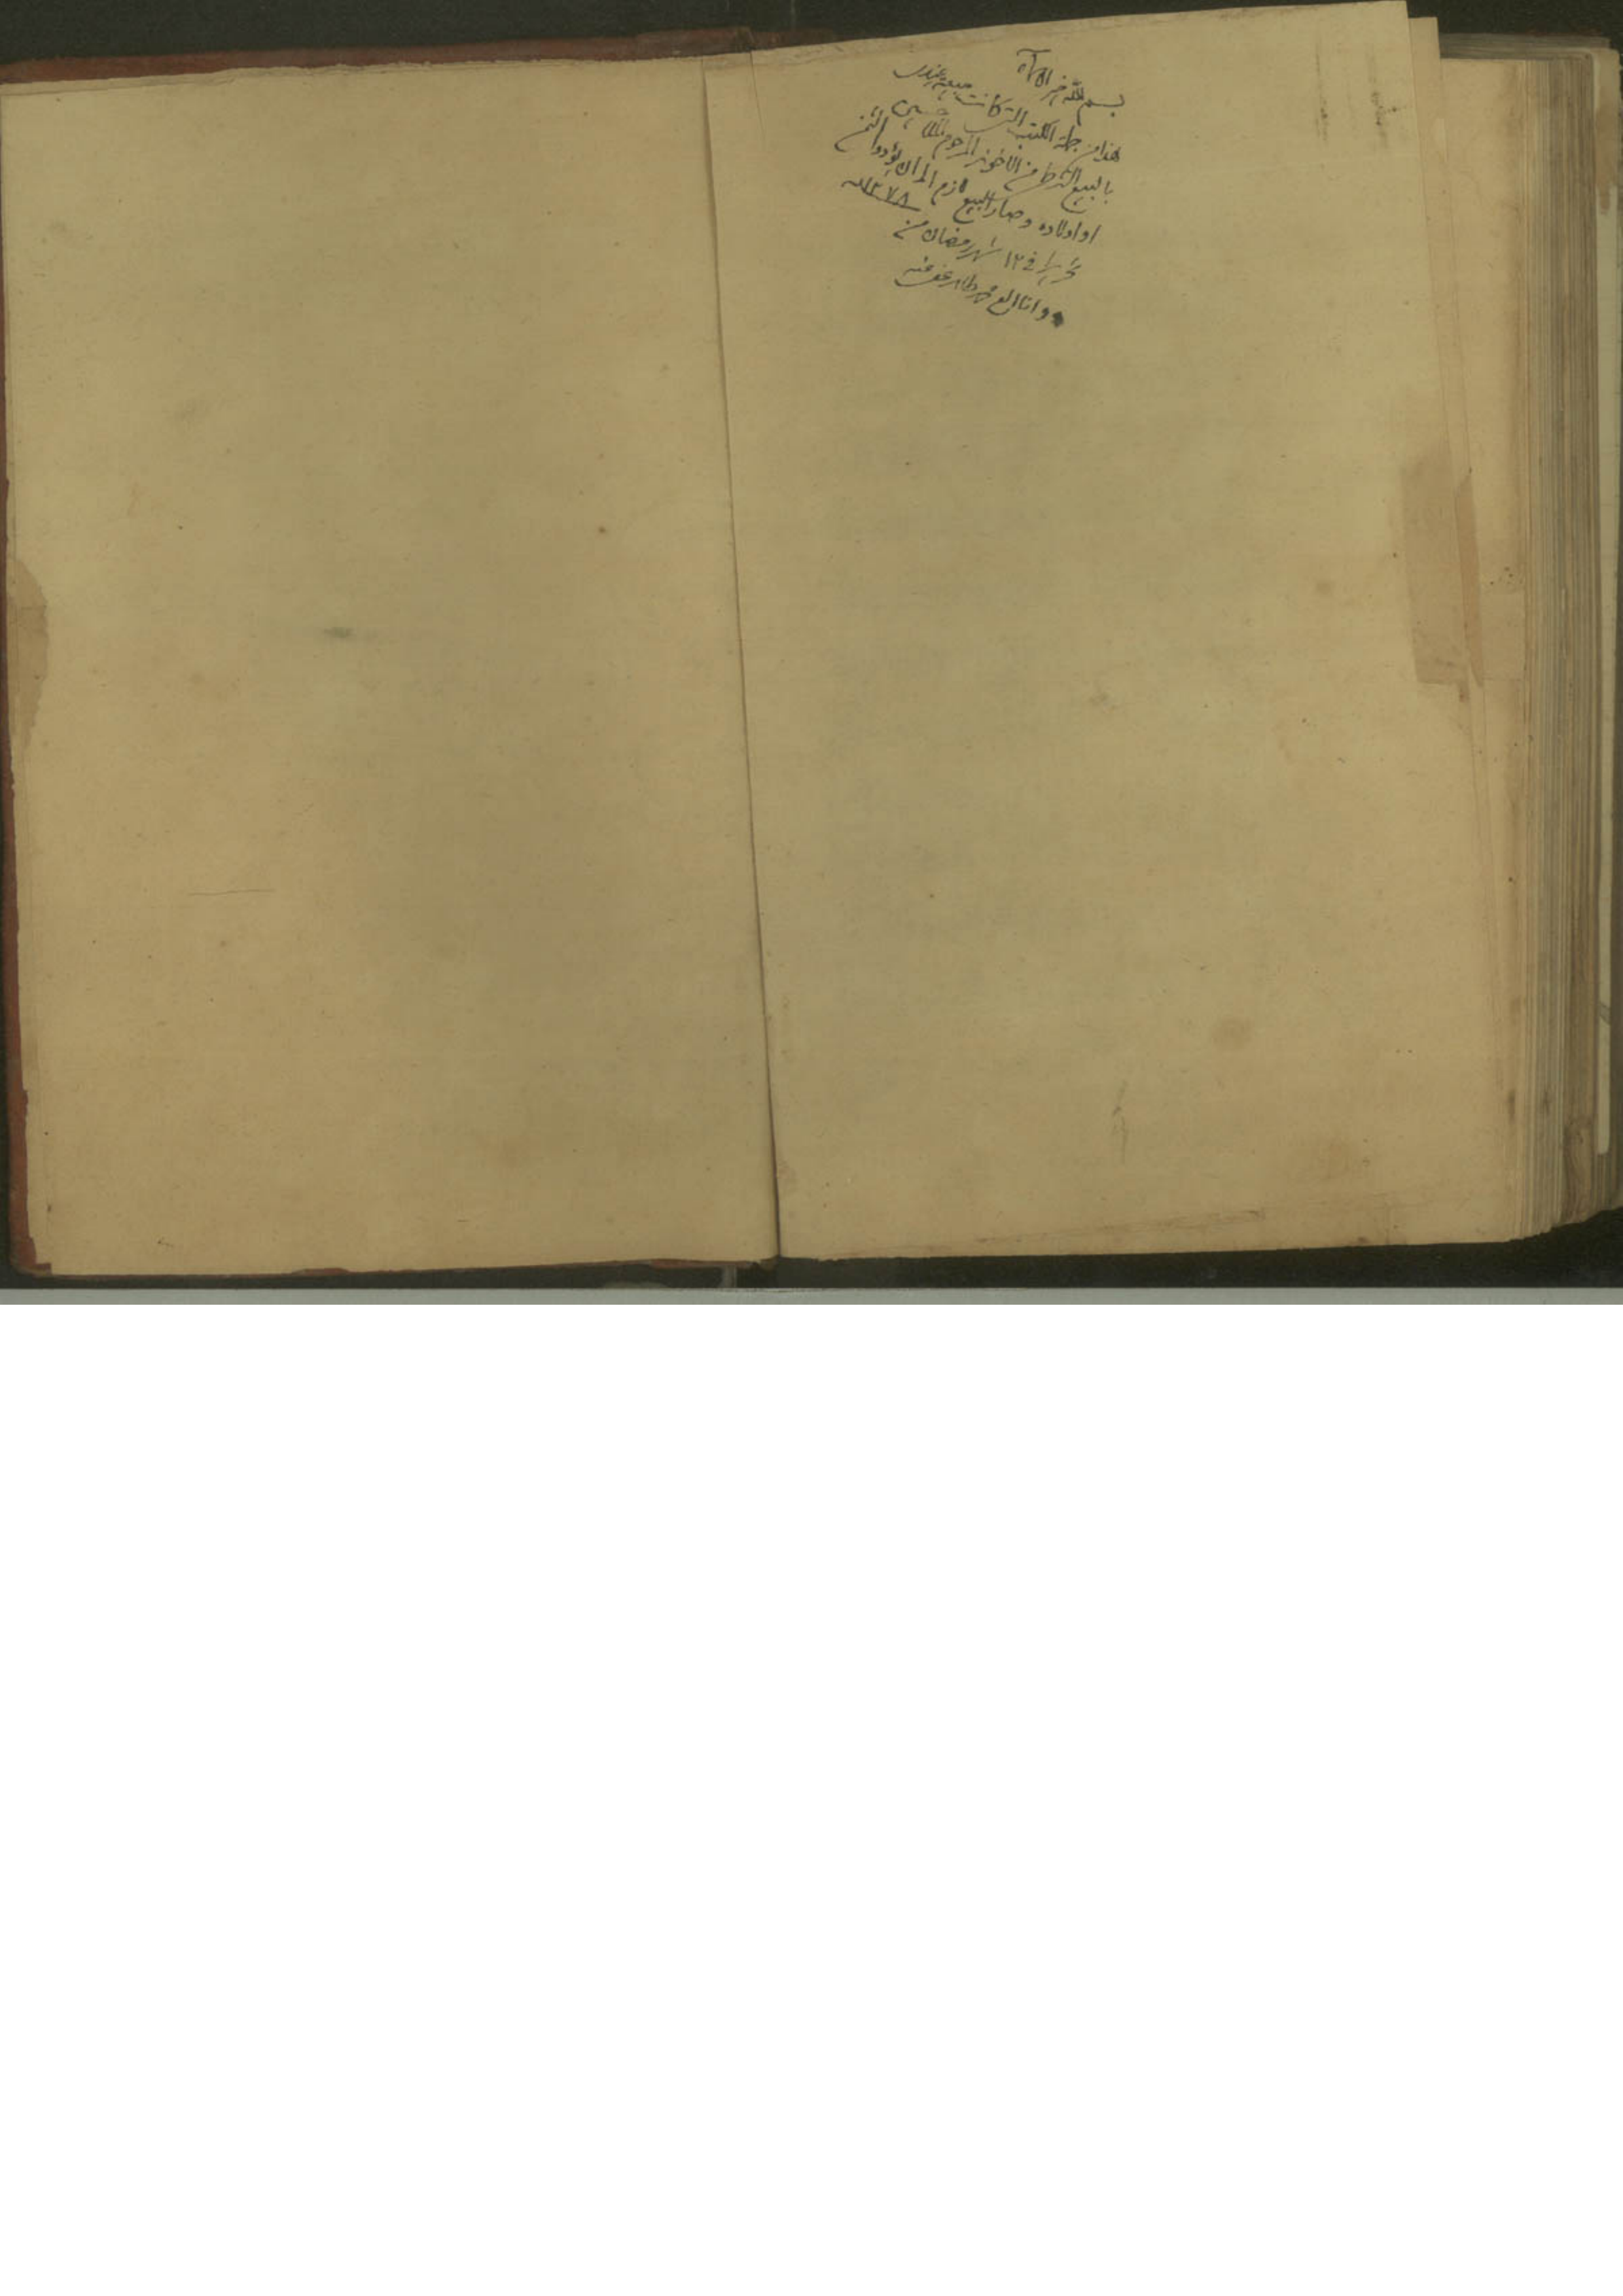 بسم الله خير الاسماء
هذا من جملة الكتب التي كانت مبيعة عندي
بالبيع الشرط من الاخوند المرحوم الملا حسين
اولاده وصار البيع لازم الى ان يؤدوا الثمن
في ١٢ شهر رمضان من ١٢٧٨
وانا محمد طاهر عفي عنه